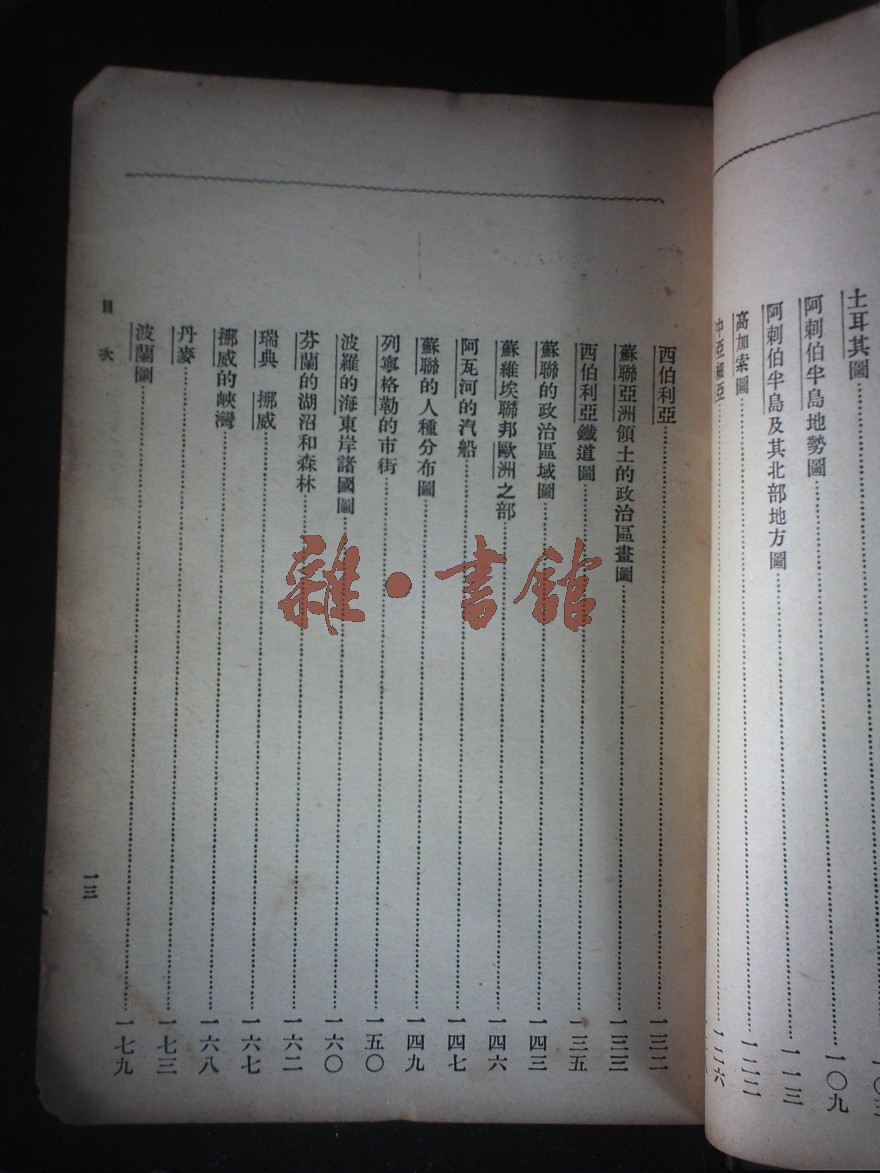 土耳其圖……一〇三
阿剌伯半島地勢圖……一〇九
阿剌伯半島及其北部地方圖……一一三
高加索圖……一二二
中亞細亞……一二六
西伯利亞……一三二
蘇聯亞洲領土的政治區畫圖……一三三
西伯利亞鐵道圖……一三五
蘇聯的政治區域圖……一四三
蘇維埃聯邦歐洲之部……一四六
阿瓦河的汽船……一四七
蘇聯的人種分布圖……一四九
列寧格勒的市街……一五〇
波羅的海東岸諸國圖……一六〇
芬蘭的湖沼和森林……一六二
瑞典　挪威……一六七
挪威的峽灣……一六八
丹麥……一七三
波蘭圖……一七九
目次
一三
雜·書館